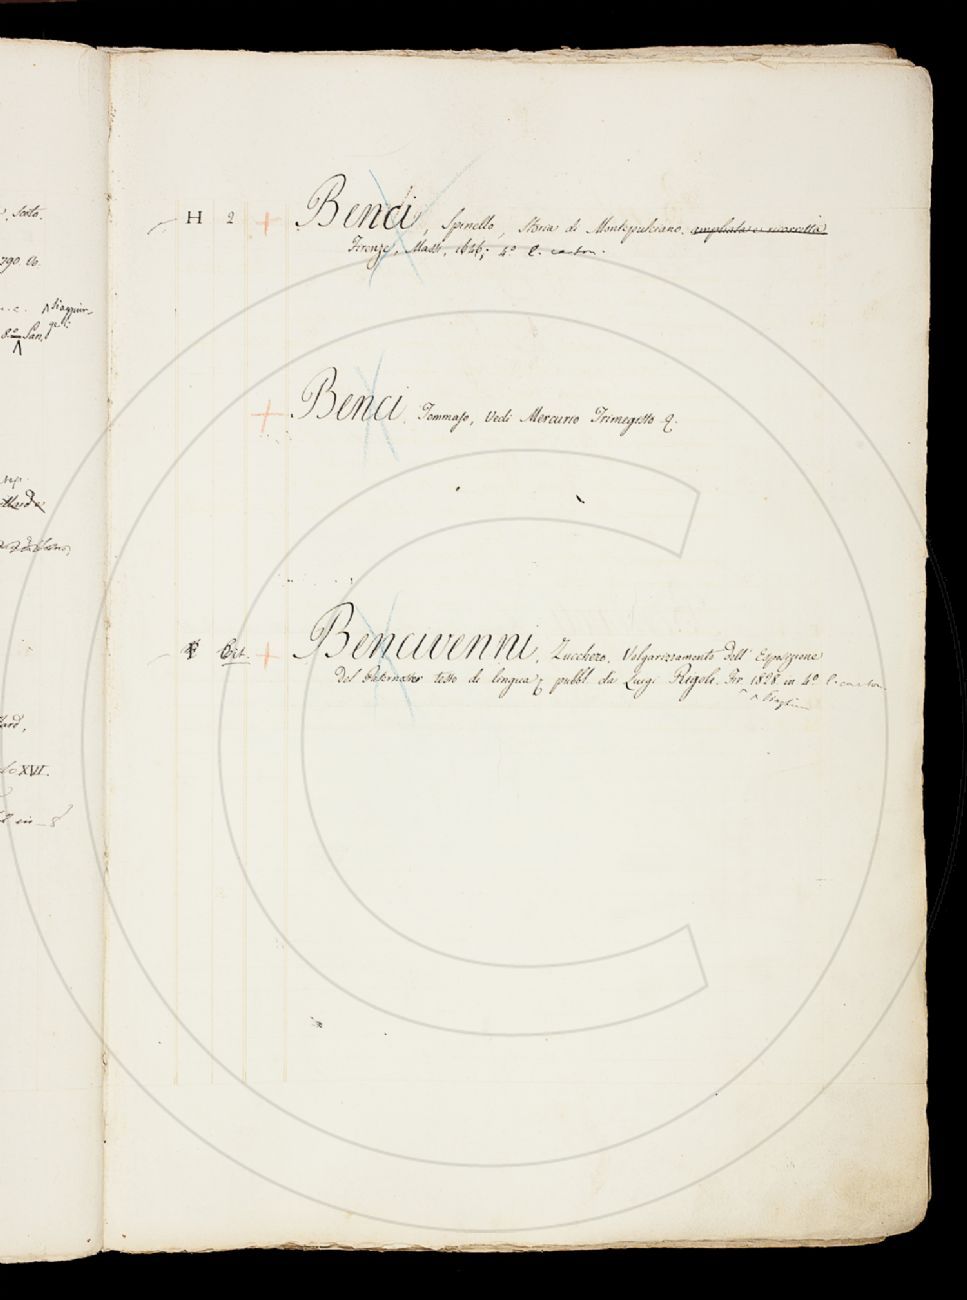 , Scoto.
790. 16.
8.° San.
XVI.
H 2 + Benci, Spinello, Storia di Montepulciano. ampliata e ricorretta
Firenze, Massi, 1646; 4.° l. carton.
+ Benci. Tommaso, Vedi Mercurio Trimegisto &.
+ Bencivenni, Zucchero. Volgarizzamento dell' Esposizione
del Paternoster testo di lingua pubbl. da Luigi Rigoli. Fir. 1828 in 4.° l. carton
^ Piazzini